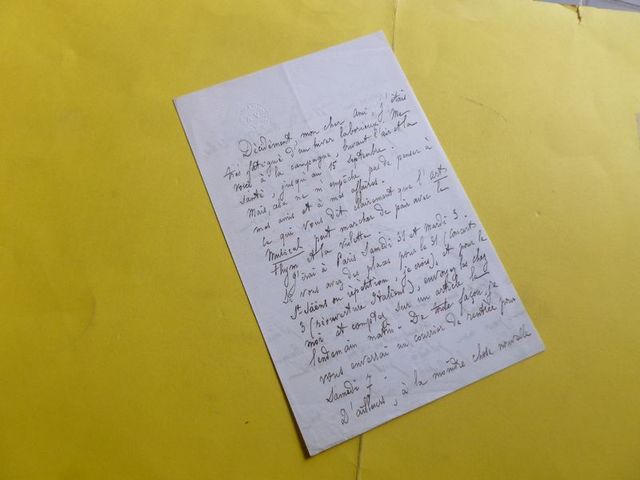 Décidément, mon cher ami, j'étais
très fatigué d'un hiver laborieux. Me
voici à la campagne, buvant l'air et la
santé, jusqu'au 15 septembre.
Mais, cela ne m'empêche pas de penser à
mes amis et à mes affaires.
Ce qui vous dit clairement que l'art
Musical peut marcher de pair avec le
thym et la violette.
J'irai à Paris Samedi 31 et Mardi 3.
Si vous avez des places pour le 31 (Concert
St Saëns ou répétition, je crois), et pour le
3 (réouverture Italiens), envoyez les chez
moi et comptez sur un article le
lendemain matin. De toute façon, je
vous enverrai un courrier de rentrée pour
Samedi 7.
D'ailleurs, à la moindre chose nouvelle